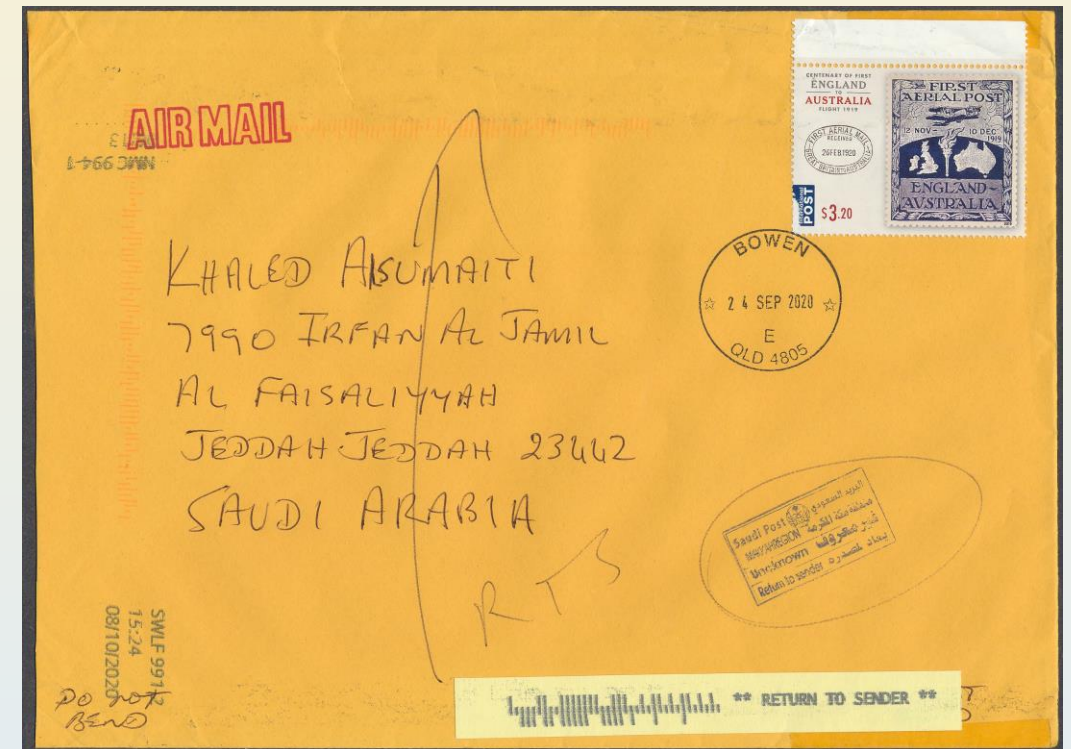 AIR MAIL
NMC 994-1
CENTENARY OF FIRST
ENGLAND
TO
AUSTRALIA
FLIGHT 1919
FIRST AERIAL MAIL
RECEIVED
26 FEB 1920
GREAT BRITAIN-AUSTRALIA
POST
$3.20
FIRST
AERIAL POST
12 NOV - 10 DEC
1919
ENGLAND-
AVSTRALIA
BOWEN
24 SEP 2020
E
QLD 4805
KHALED AlSUMAITI
7990 IRFAN AL JAMIL
AL FAISALIYYAH
JEDDAH-JEDDAH 23442
SAUDI ARABIA
RTS
Saudi Post البريد السعودي
MAKKAH REGION منطقة مكة المكرمة
Uncknown غير معروف
Return to sender يعاد لمصدره
SWLF 991
15:24
08/10/2020
DO NOT
BEND
** RETURN TO SENDER **